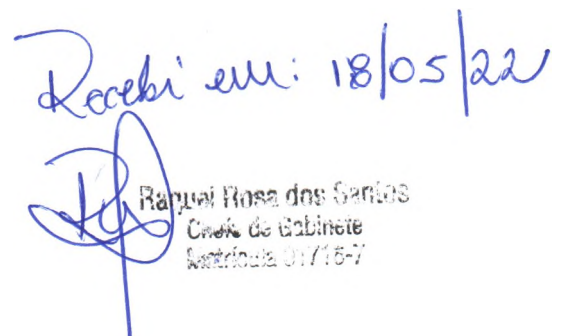 Recebi em: 18/05/22
Raquel Rosa dos Santos
Chefe de Gabinete
Matrícula 01716-7